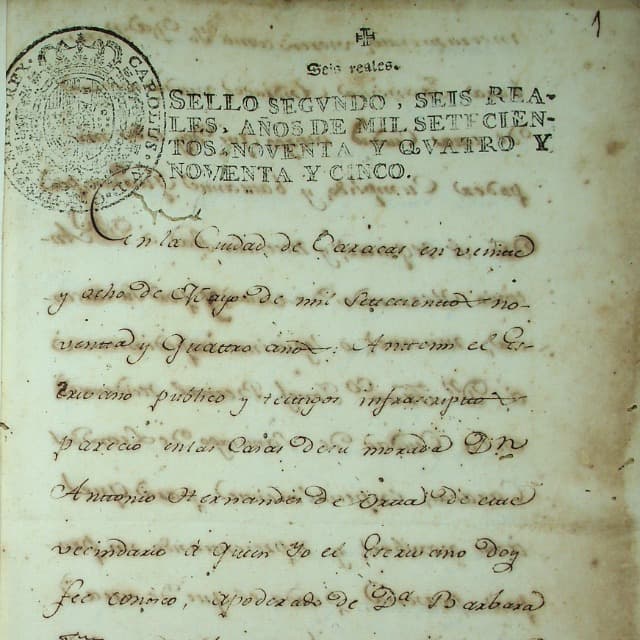 1
Seis reales.
SELLO SEGVNDO, SEIS REA-
LES, AÑOS DE MIL SETECIEN-
TOS NOVENTA Y QVATRO Y
NOVENTA Y CINCO.
CAROLUS
En la Ciudad de Caracas en veinte
y ocho de Mayo de mil setecientos no-
venta y Quattro años. Antemi el Es-
crivano publico y testigos infrascriptos
parecio en las Casas de su morada Dn
Antonio Hernandes de Orta de este
vecindario á quien Yo el Escrivano doy
fee conosco, apoderado de Da. Barbara